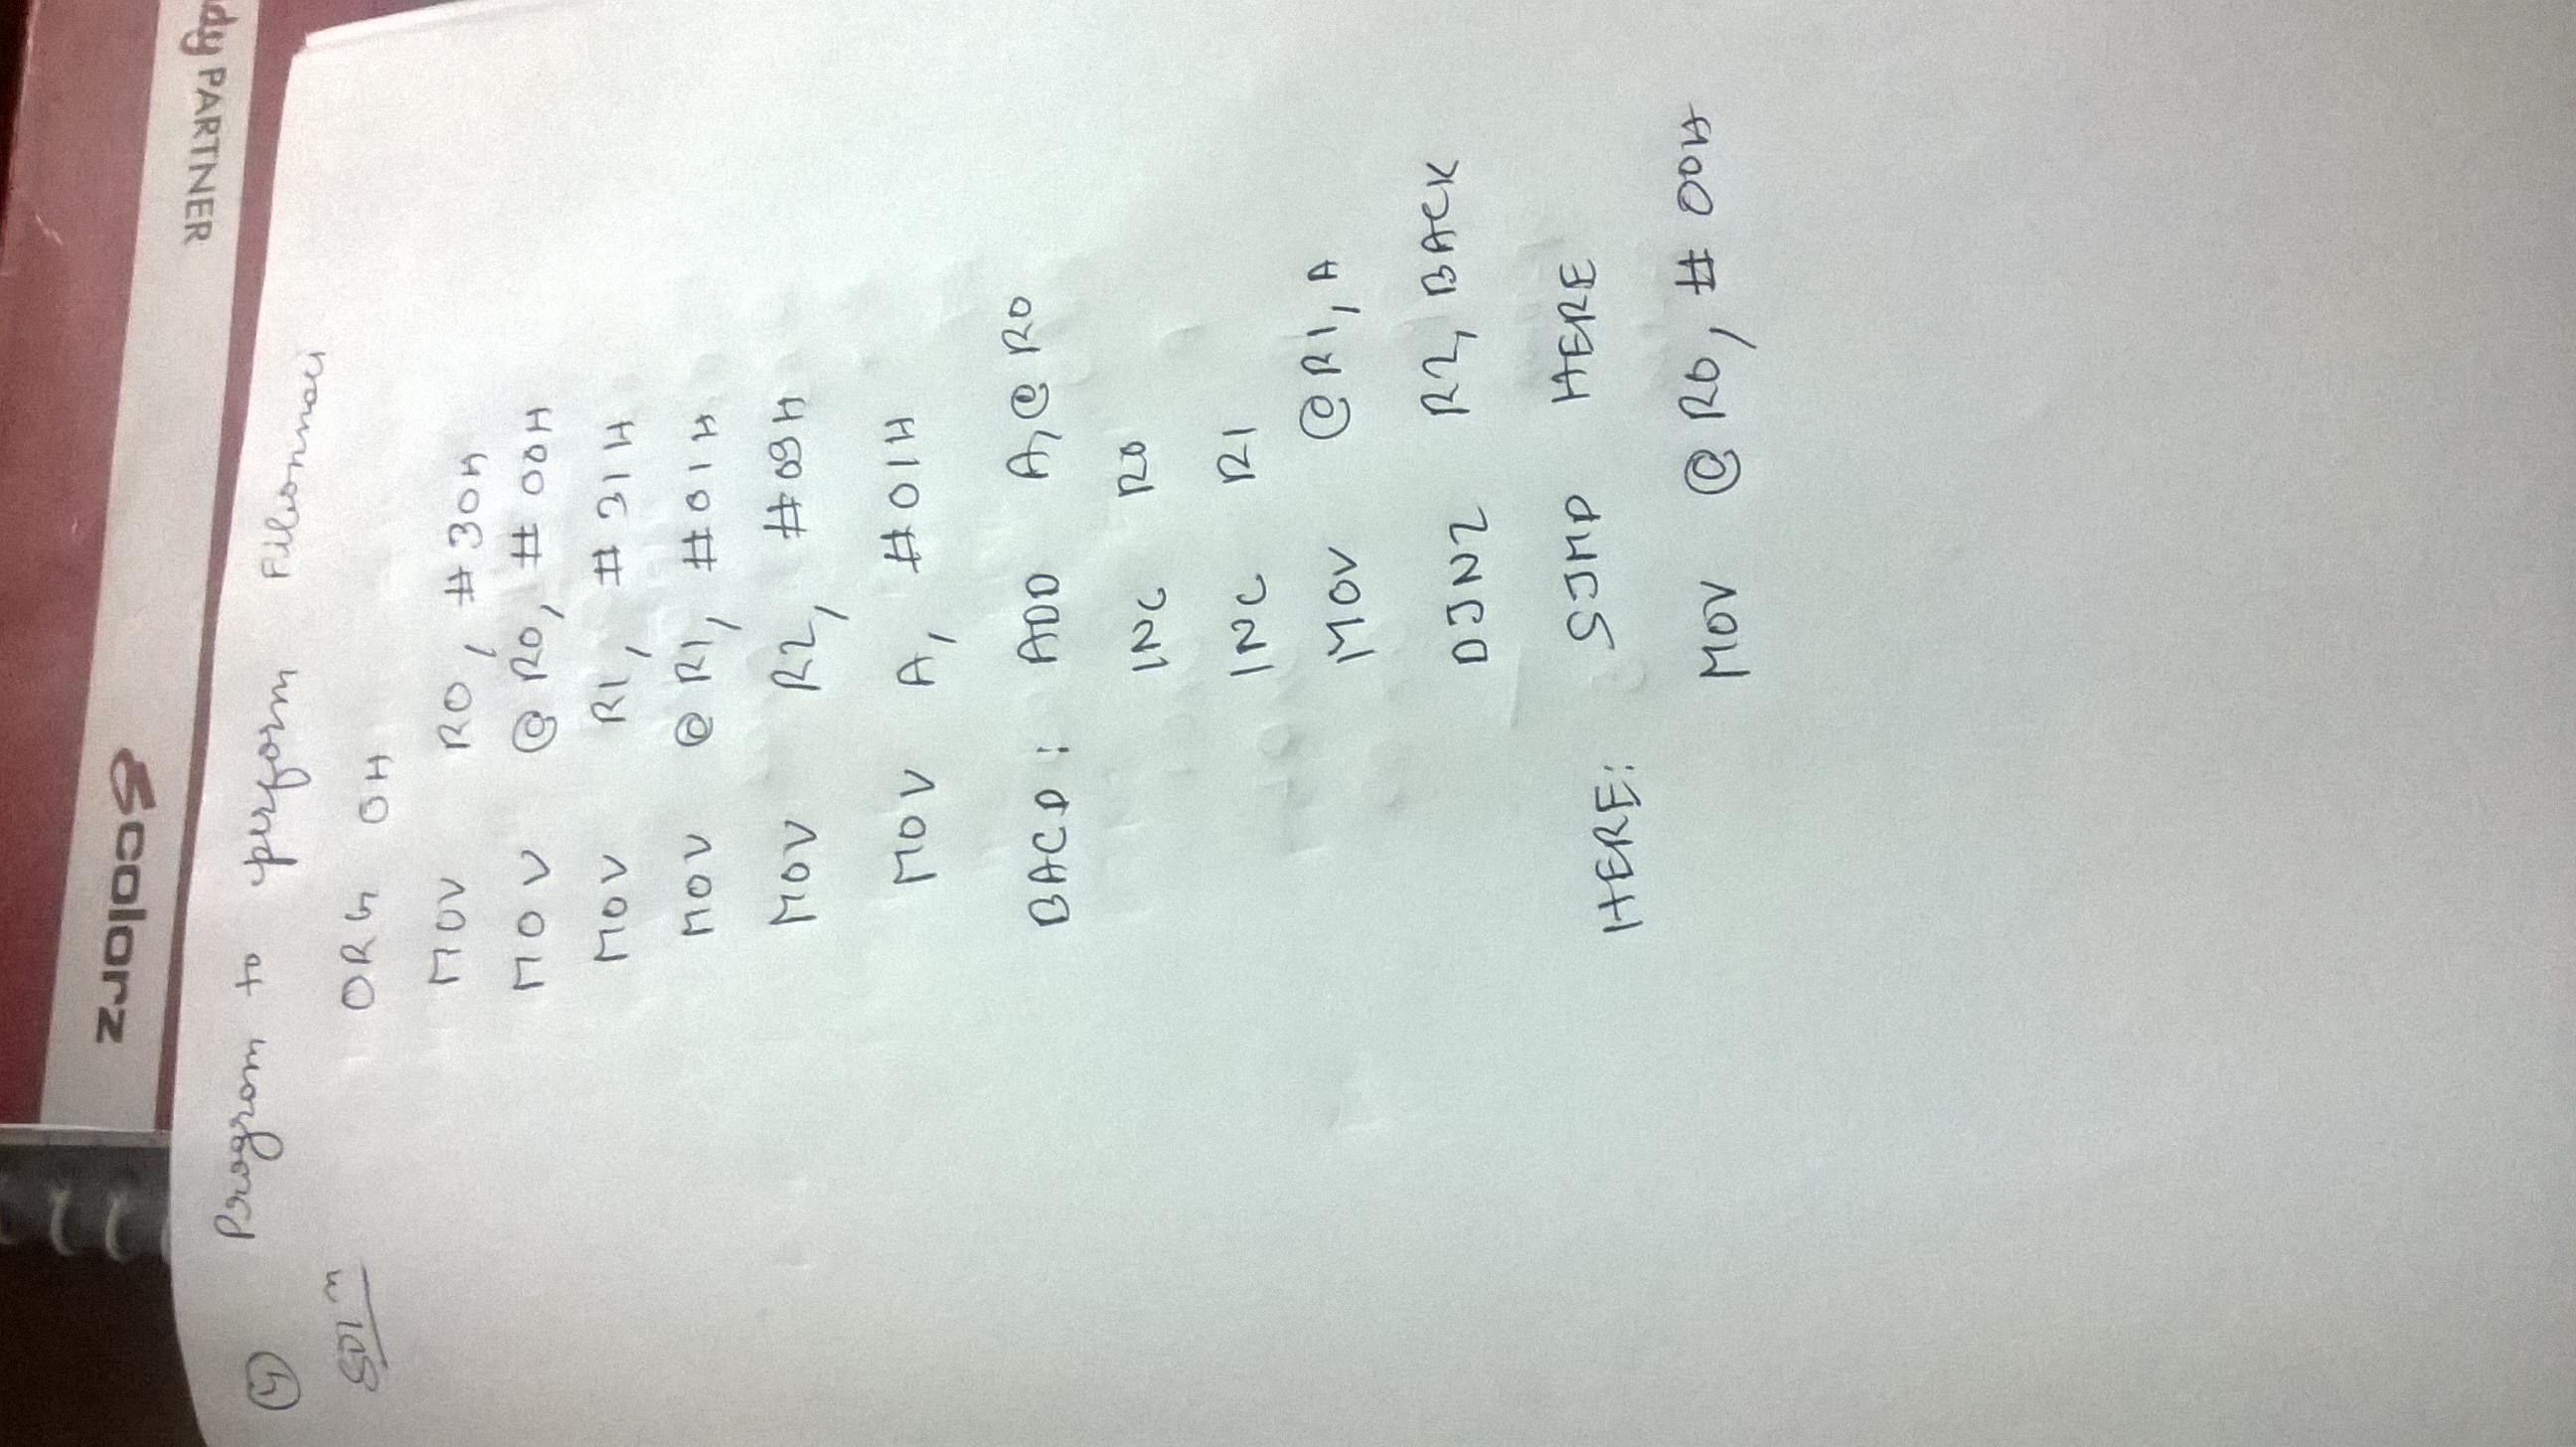 dy PARTNER
Scolorz
4 Program to perform Fibonnaci
Solⁿ ORG 0H
MOV R0, #30H
MOV @R0, #00H
MOV R1, #31H
MOV @R1, #01H
MOV R2, #09H
MOV A, #01H
BACD: ADD A,@R0
INC R0
INC R1
MOV @R1, A
DJNZ R2, BACK
HERE: SJMP HERE
MOV @R0, #00H